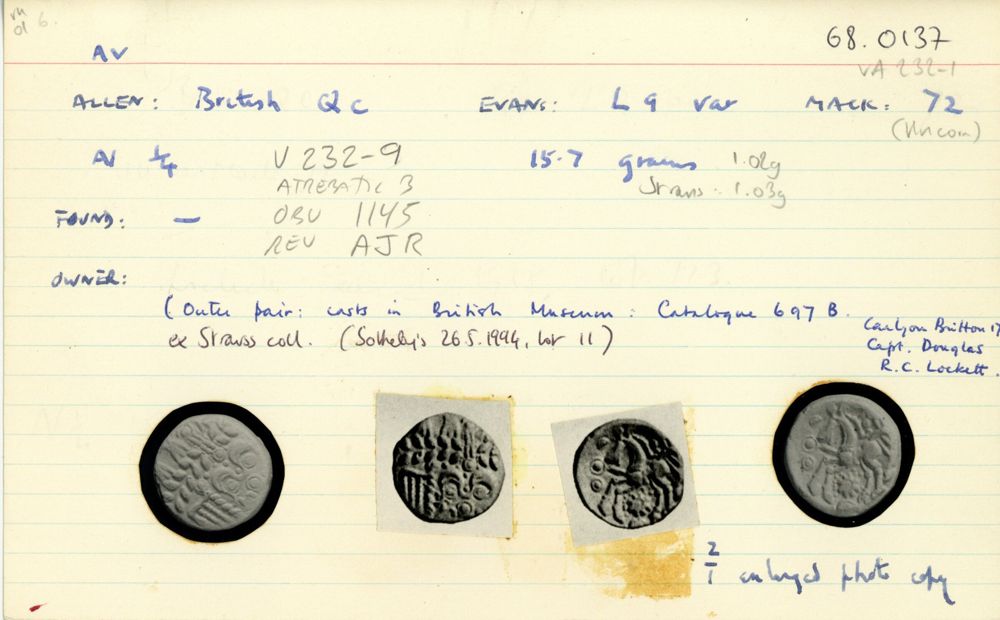 6.
68.0137
AV
VA 232-1
ALLEN: British Qc EVANS: L 9 var MACK: 72
(Uncoin)
AV 1/4 V 232-9 15.7 grams 1.02g
ATREBATIC B Strauss: 1.03g
FOUND: — OBV 1145
REV AJR
OWNER:
(Outer pair: casts in British Museum: Catalogue 697 B.
ex Strauss coll. (Sotheby's 26.5.1994, lot 11)
Carlyon Britton 17
Capt. Douglas
R.C. Lockett.
2/1 enlarged photo copy